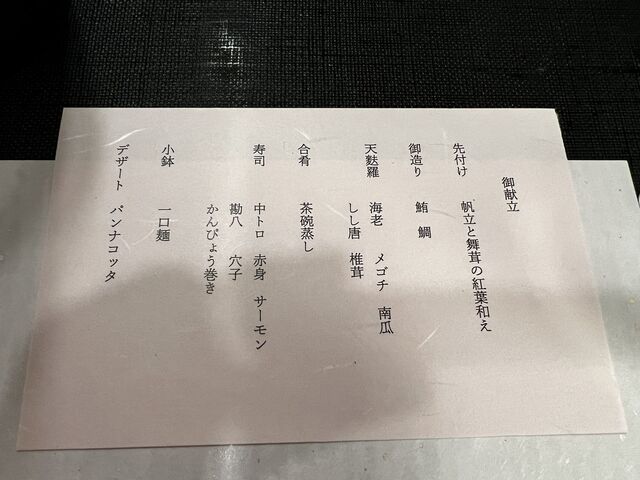 御献立
先付け 帆立と舞茸の紅葉和え
御造り 鮪 鯛
天麩羅 海老 メゴチ 南瓜
しし唐 椎茸
合肴 茶碗蒸し
寿司 中トロ 赤身 サーモン
勘八 穴子
かんぴょう巻き
小鉢 一口麺
デザート パンナコッタ